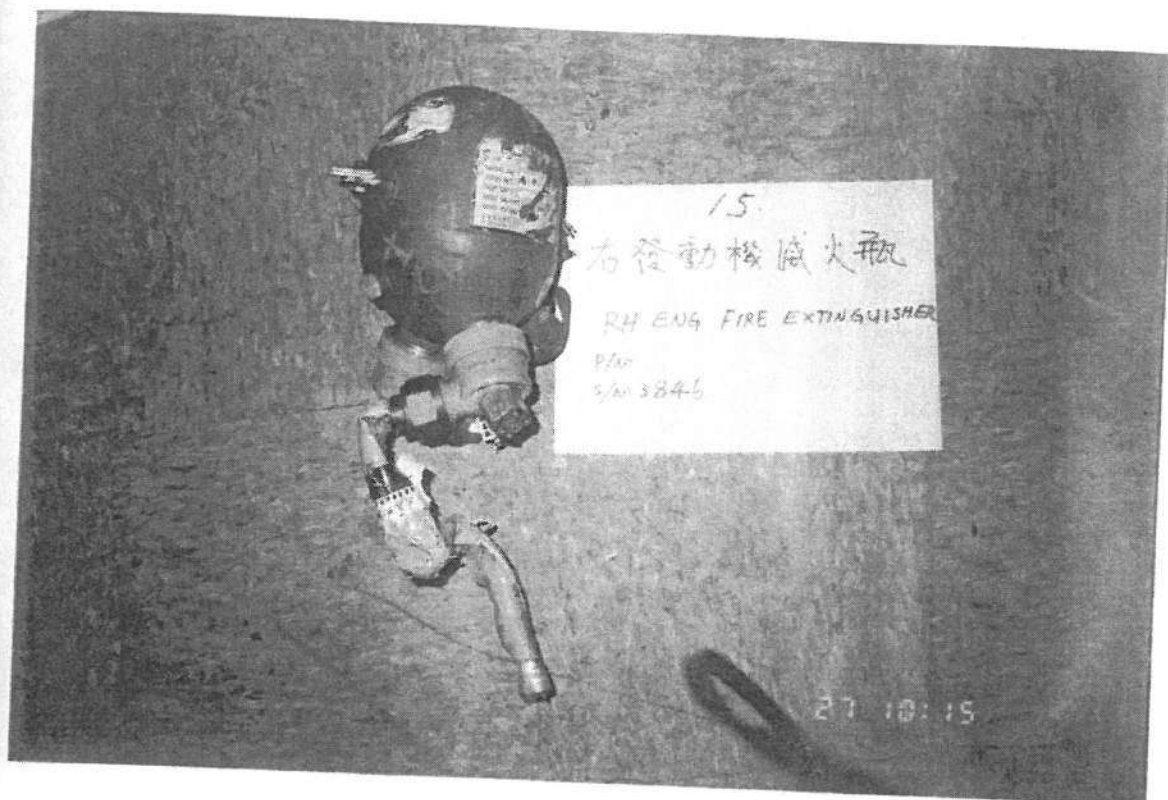 15.
右發動機滅火瓶
RH ENG FIRE EXTINGUISHER
P/N
S/N 3846
27 10:15